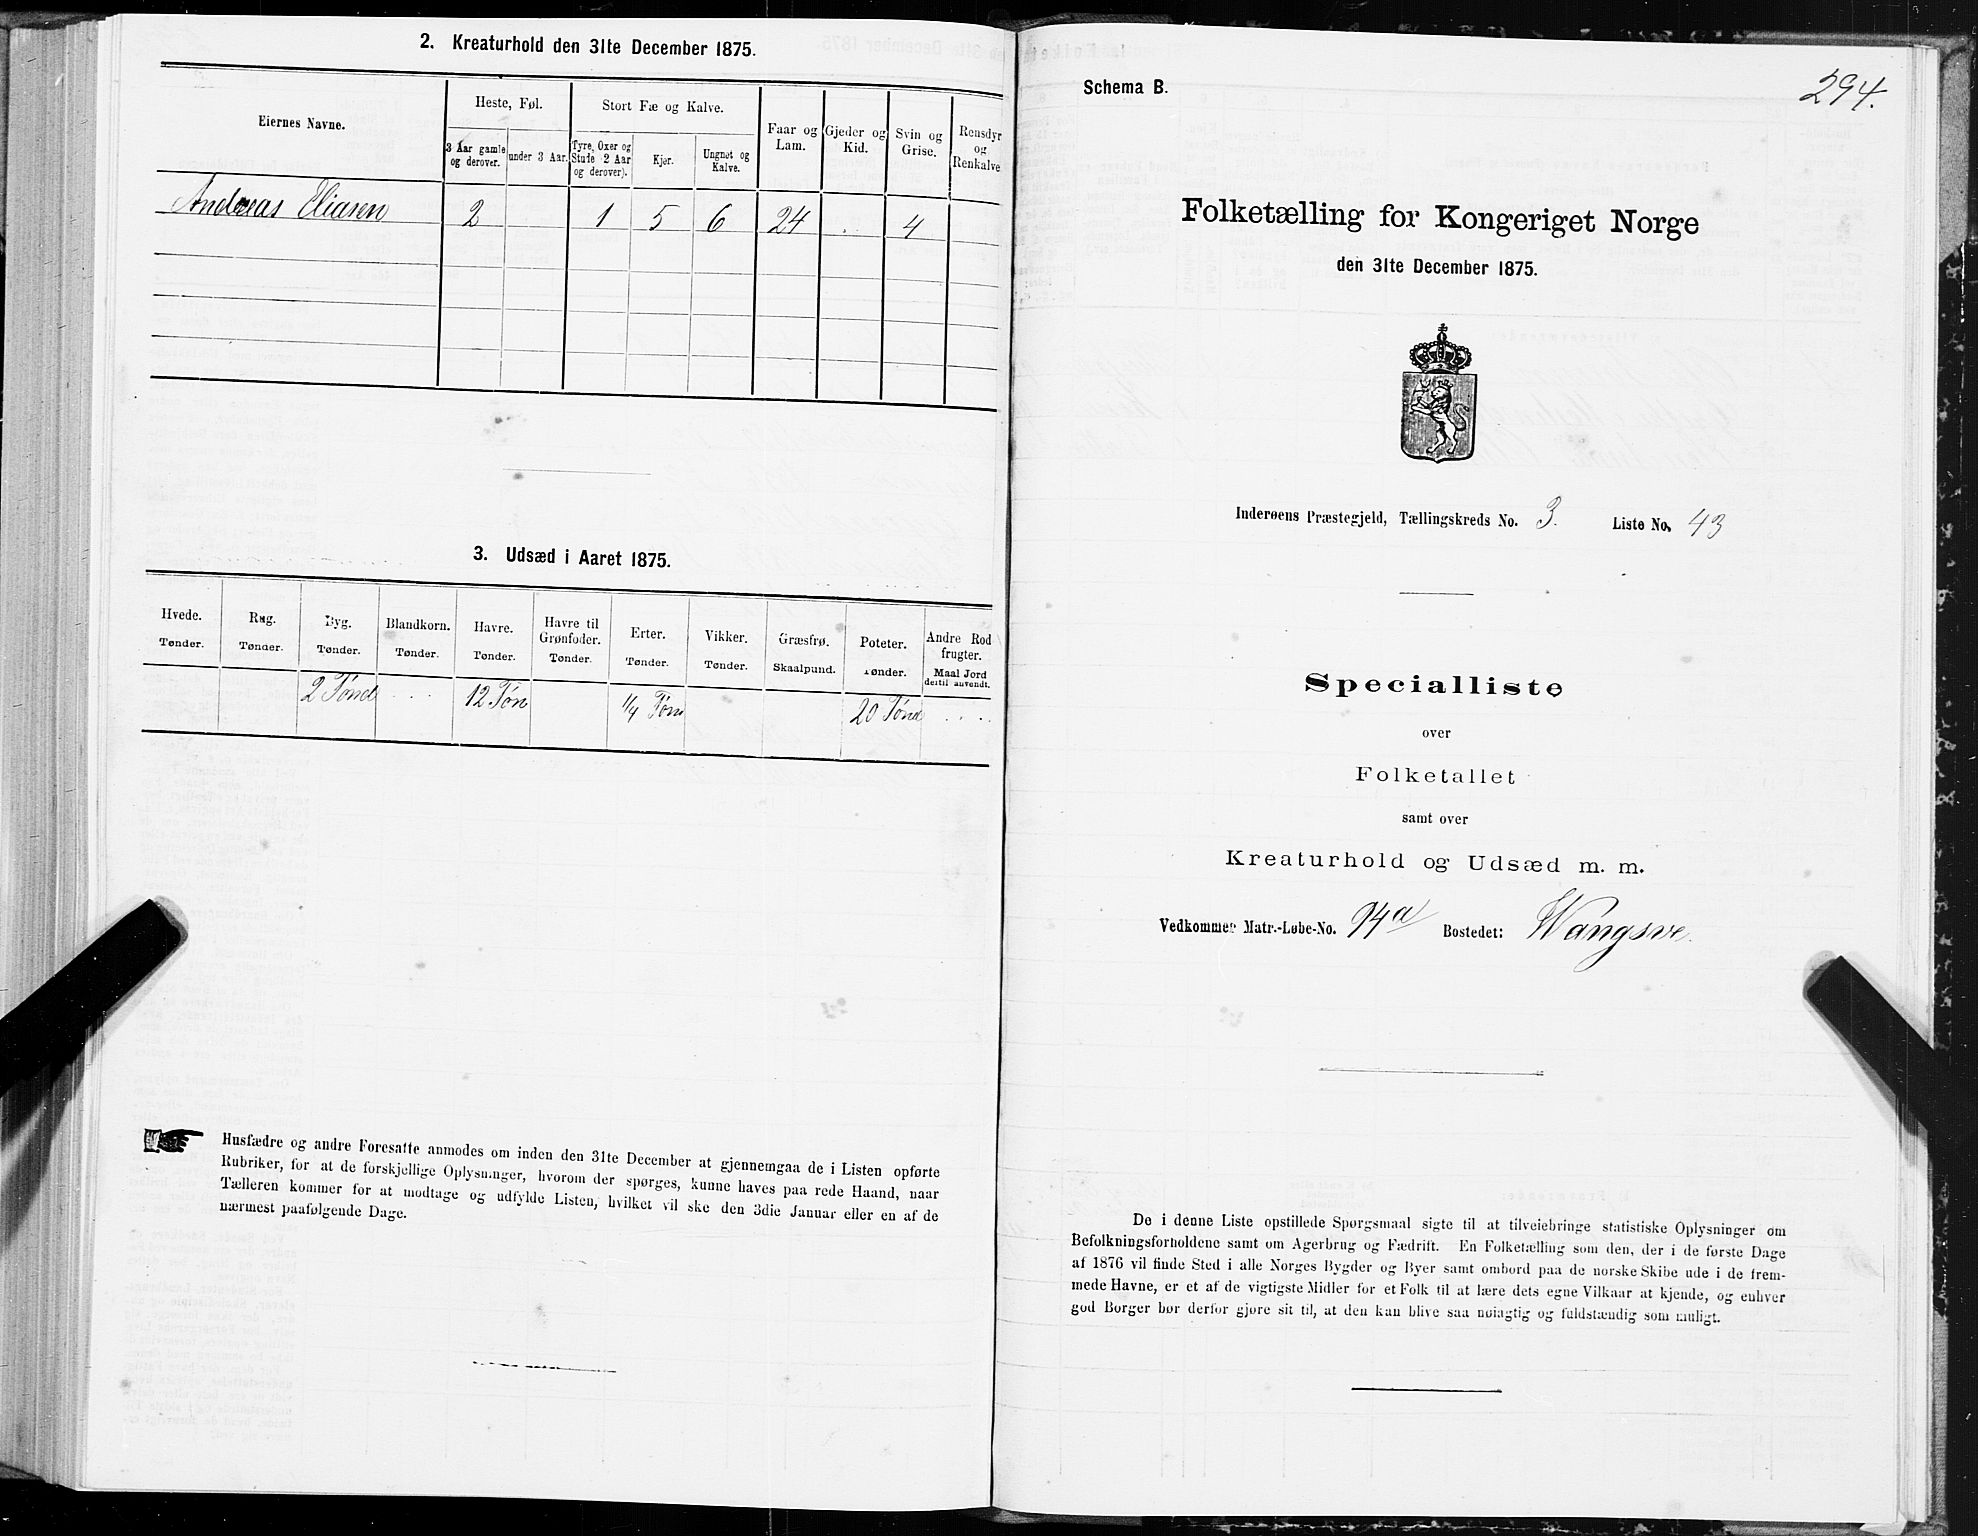 2. Kreaturhold den 31te December 1875.
Eiernes Navne.
Heste, Føl.
Stort Fæ og Kalve.
Faar og Lam.
Gjeder og Kid.
Svin og Grise.
Rensdyr og Renkalve
3 Aar gamle og derover.
under 3 Aar.
Tyre, Oxer og Stude 2 Aar og derover).
Kjør.
Ungnøt og Kalve.
Andreas Eliasen 2 1 5 6 24 . 4
3. Udsæd i Aaret 1875.
Hvede. Rug. Byg. Blandkorn. Havre. Havre til Grønfoder. Erter. Vikker. Græsfrø. Poteter. Andre Rod frugter.
Tønder. Tønder. Tønder. Tønder. Tønder. Tønder. Tønder. Tønder. Skaalpund. Tønder. Maal Jord dertil anvendt.
2 Tønd . . . 12 Tøn 1/4 Tøn 20 Tønd . . . .
Husfædre og andre Foresatte anmodes om inden den 31te December at gjennemgaa de i Listen opførte
Rubriker, for at de forskjellige Oplysninger, hvorom der spørges, kunne haves paa rede Haand, naar
Tælleren kommer for at modtage og udfylde Listen, hvilket vil ske den 3die Januar eller en af de
nærmest paafølgende Dage.
Schema B.
294.
Folketælling for Kongeriget Norge
den 31te December 1875.
Inderøens Præstegjeld, Tællingskreds No. 3. Liste No. 43
Specialliste
over
Folketallet
samt over
Kreaturhold og Udsæd m. m.
Vedkommer Matr.-Løbe-No. 94a Bostedet: Wangsve.
De i denne Liste opstillede Spørgsmaal sigte til at tilveiebringe statistiske Oplysninger om
Befolkningsforholdene samt om Agerbrug og Fædrift. En Folketælling som den, der i de første Dage
af 1876 vil finde Sted i alle Norges Bygder og Byer samt ombord paa de norske Skibe ude i de frem-
mede Havne, er et af de vigtigste Midler for et Folk til at lære dets egne Vilkaar at kjende, og enhver
god Borger bør derfor gjøre sit til, at den kan blive saa nøiagtig og fuldstændig som muligt.